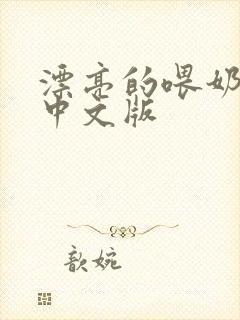 漂亮的喂奶
中文版
歆婉